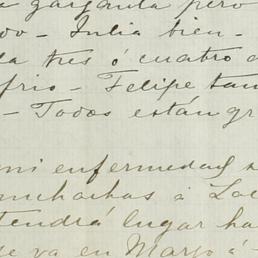 garganta pero
- Julia bien -
tres ó cuatro
frio - Felipe tam
- Todos están gr
mi enfermedad
muchachas á Lol
tendrá lugar ha
se va en Marzo á